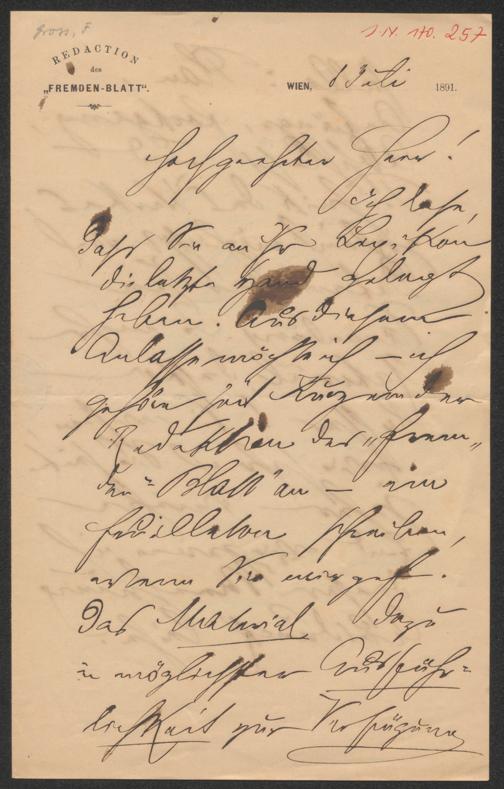 Gross, F
I.N. 170.257
REDACTION
des
„FREMDEN-BLATT“.
WIEN, 8 Juli 1891.
Hochgeehrter Herr!
Ich lese,
daß Sie an Ihr Lexikon
die letzte Hand gelegt
haben. Aus diesem
Anlasse möchte ich – ich
gehöre seit Kurzem der
Redaktion des „Frem-
den-Blatt“ an – ein
Feuilleton schreiben,
wenn Sie mir gef.
das Material dazu
in möglichster Ausführ-
lichkeit zur Verfügung